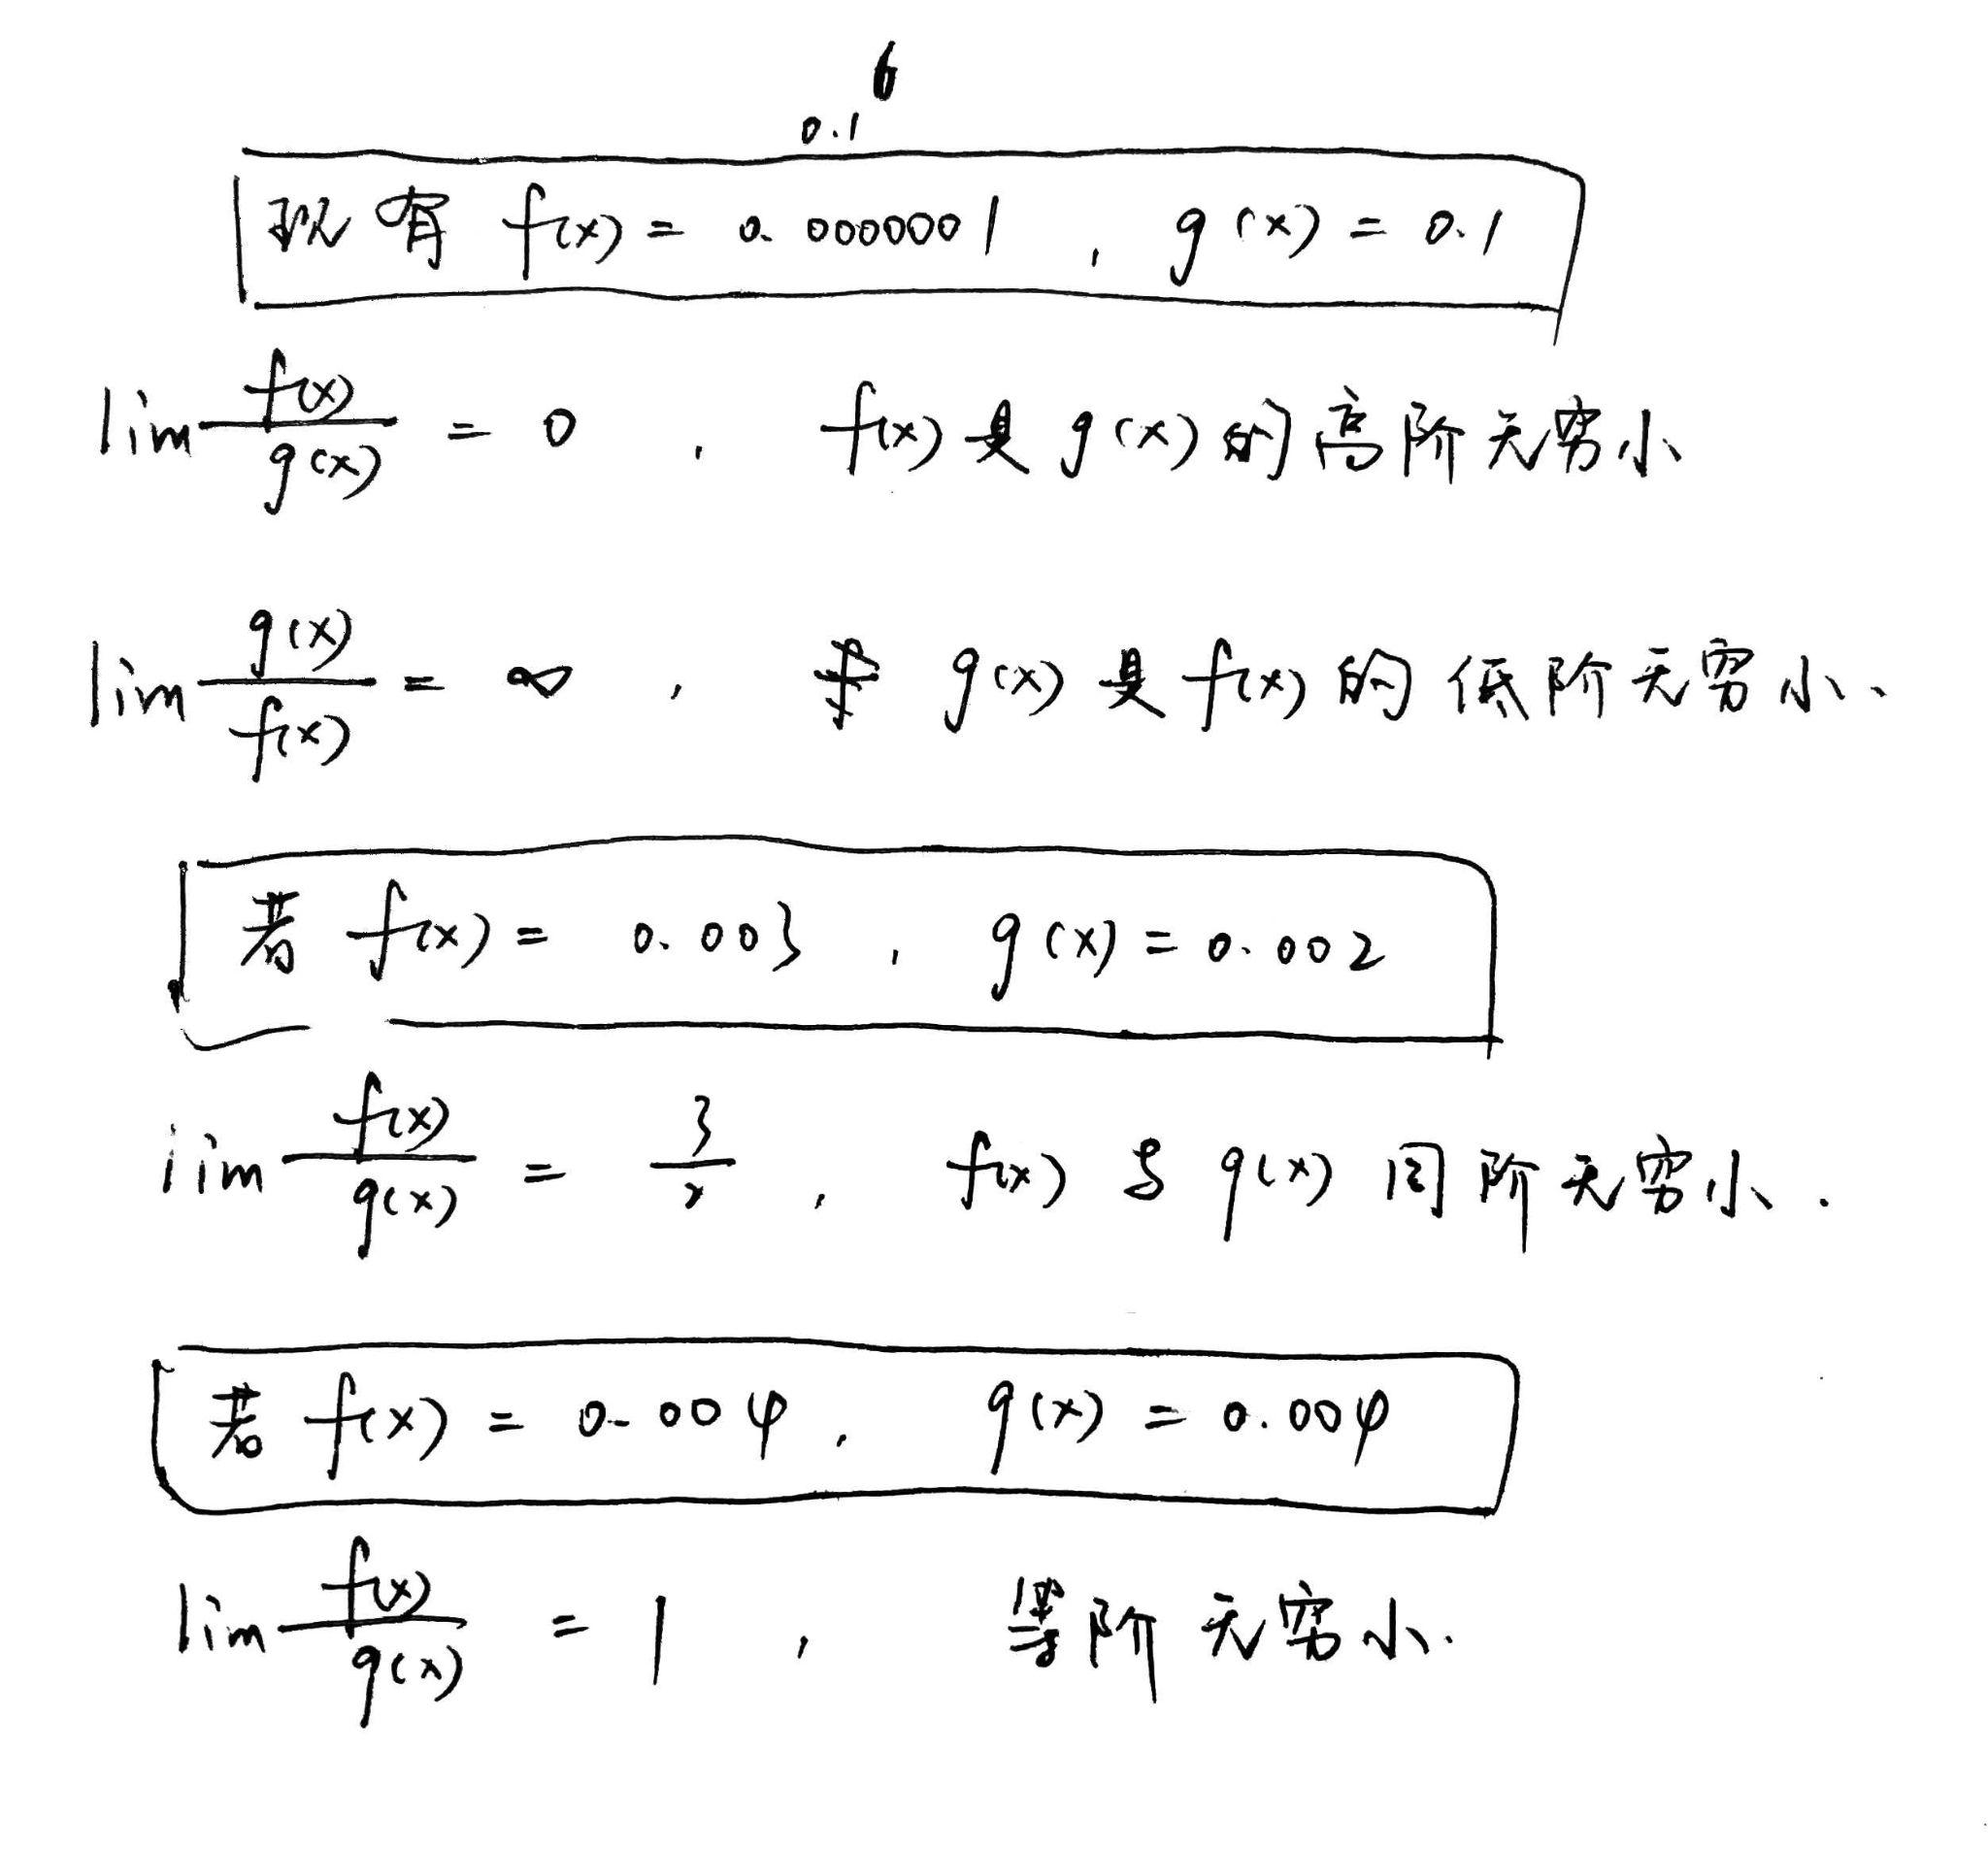 0.1⁶
现有 f(x) = 0.0000001 , g(x) = 0.1
lim f(x)/g(x) = 0 , f(x) 是 g(x) 的高阶无穷小
lim g(x)/f(x) = ∞ , g(x) 是 f(x) 的 低阶无穷小、
若 f(x) = 0.003 , g(x) = 0.002
lim f(x)/g(x) = 3/2 , f(x) 与 g(x) 同阶无穷小 .
若 f(x) = 0.004 , g(x) = 0.004
lim f(x)/g(x) = 1 , 等阶无穷小.